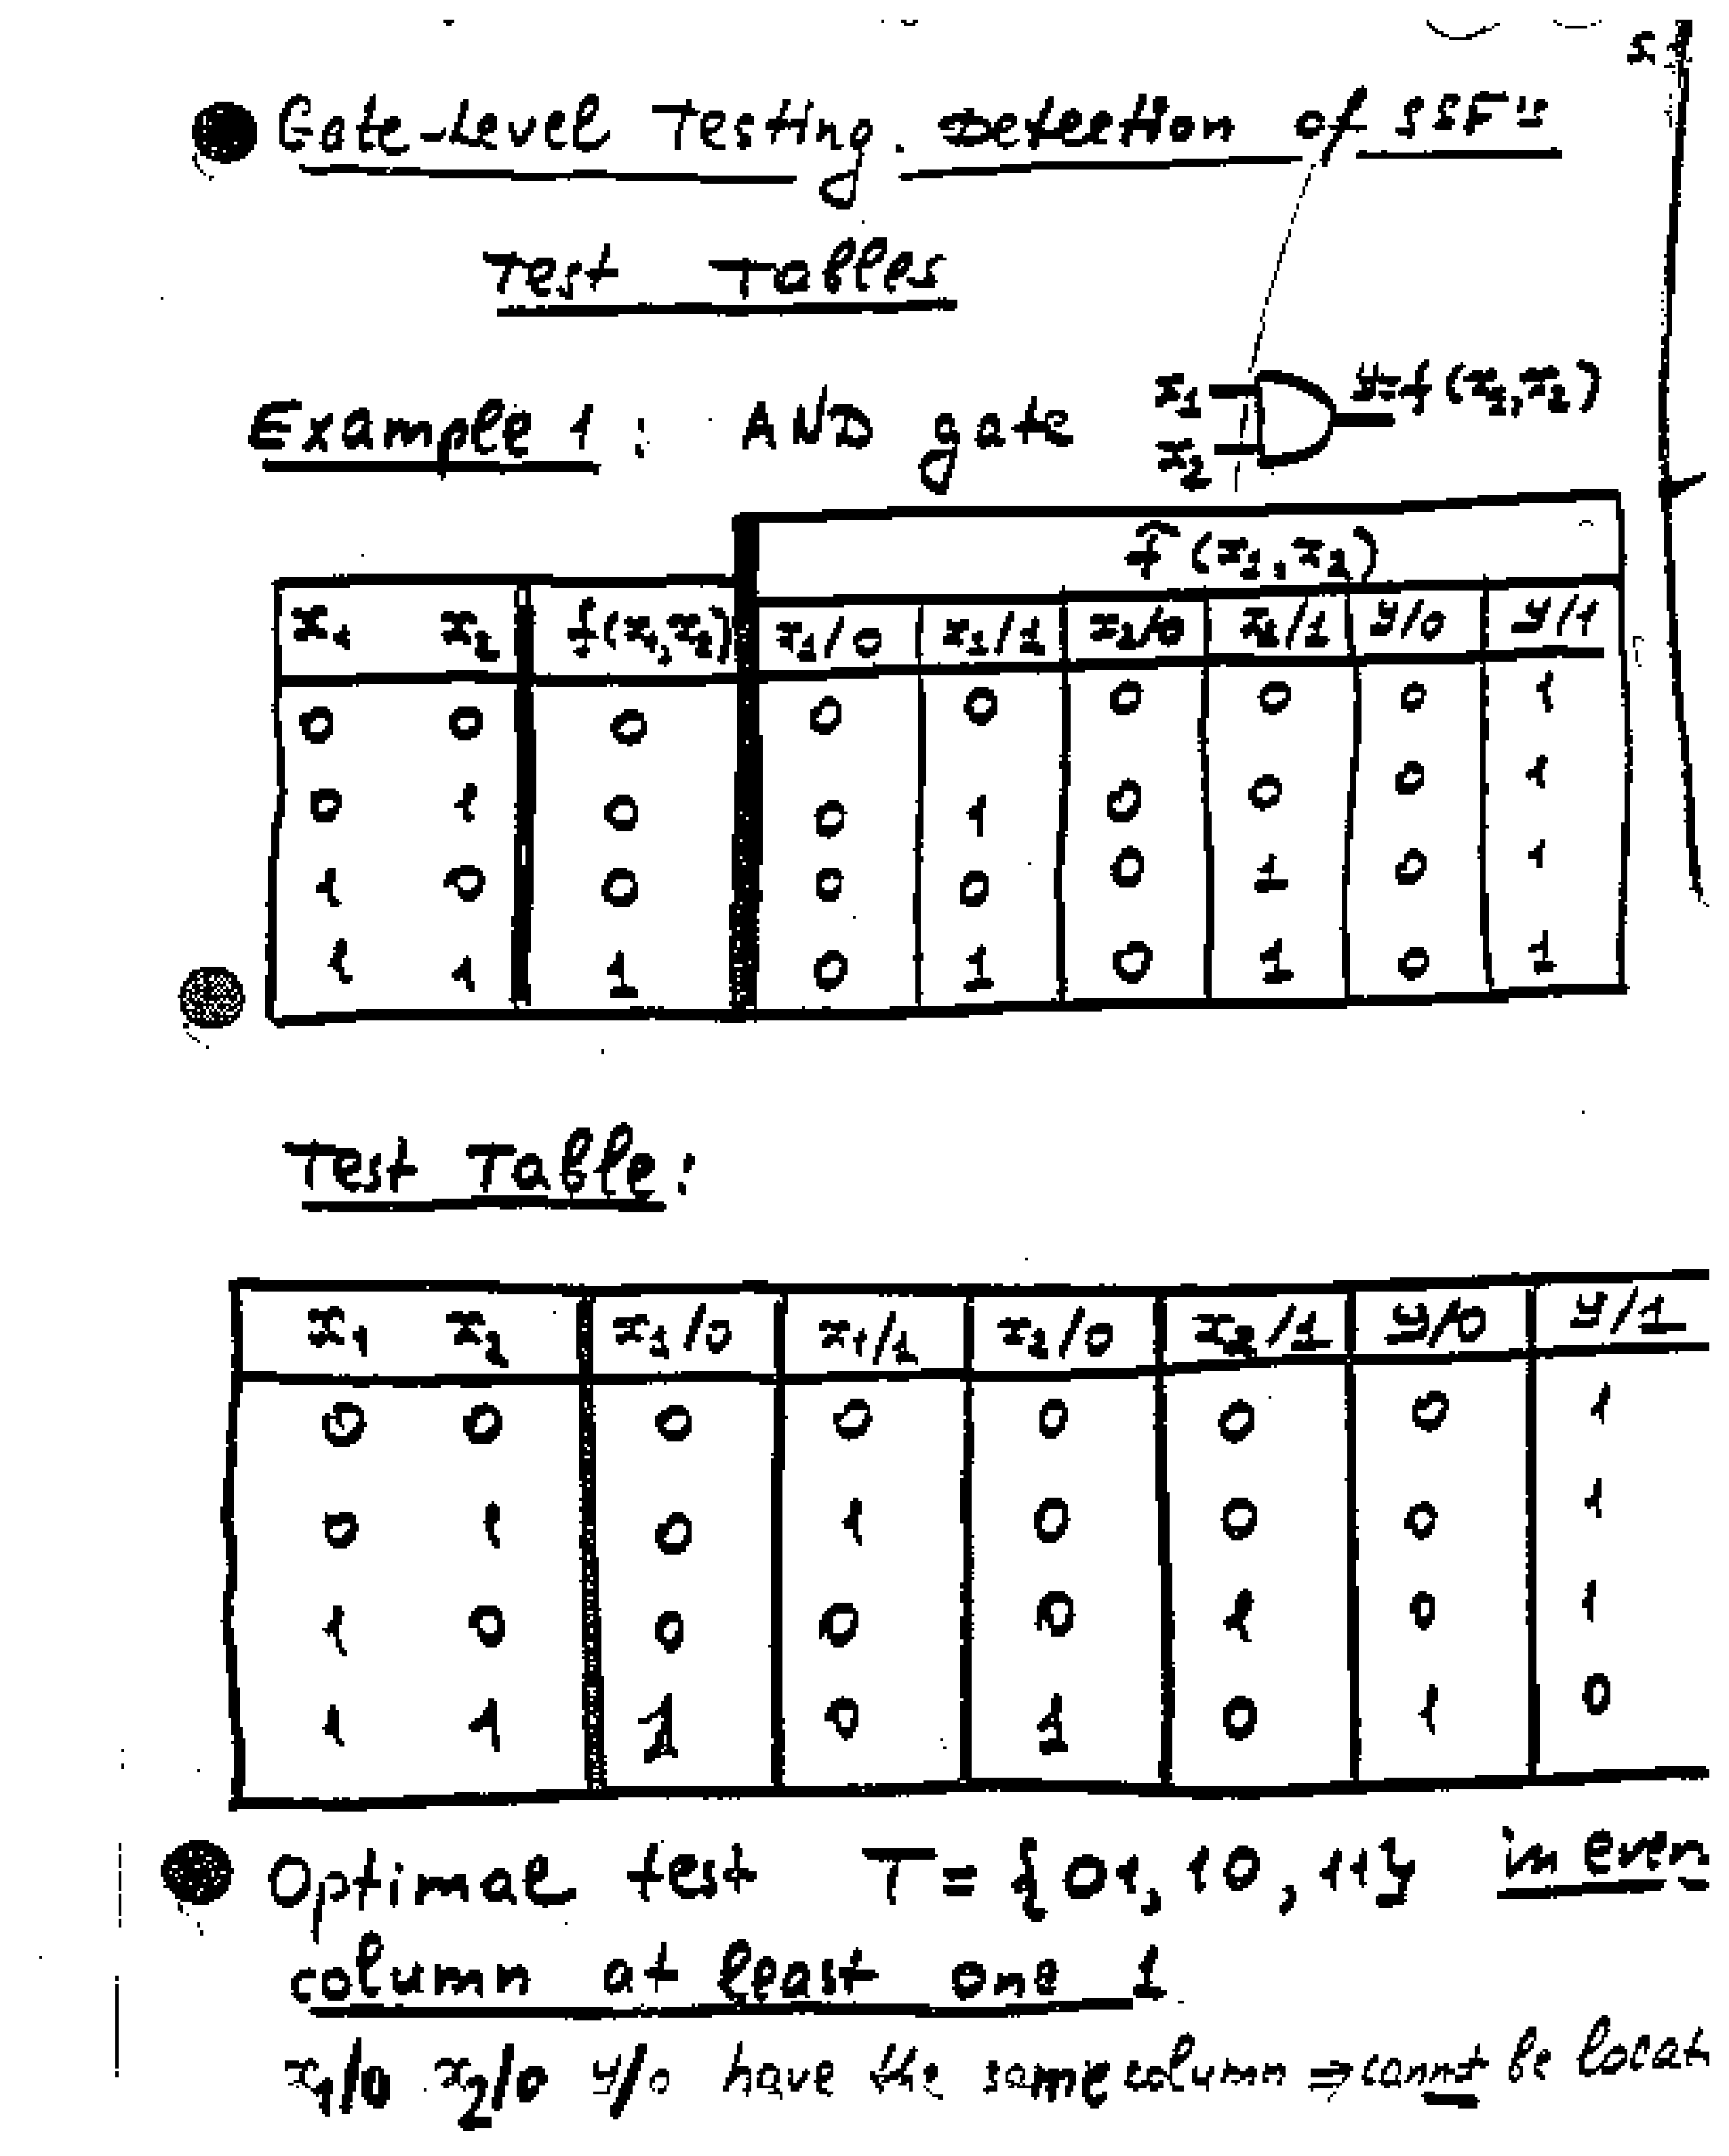 51
Gate-Level Testing. Detection of SSF's
Test Tables
Example 1: AND gate x₁ x₂ y=f(x₁,x₂)
f̂(x₁,x₂)
x₁ x₂ f(x₁,x₂) x₁/0 x₁/1 x₂/0 x₂/1 y/0 y/1
0 0 0 0 0 0 0 0 1
0 1 0 0 1 0 0 0 1
1 0 0 0 0 0 1 0 1
1 1 1 0 1 0 1 0 1
Test Table:
x₁ x₂ x₁/0 x₁/1 x₂/0 x₂/1 y/0 y/1
0 0 0 0 0 0 0 1
0 1 0 1 0 0 0 1
1 0 0 0 0 1 0 1
1 1 1 0 1 0 1 0
Optimal test T = {01, 10, 11} in ever
column at least one 1
x₁/0 x₂/0 y/0 have the same column ⇒ cannot be locat